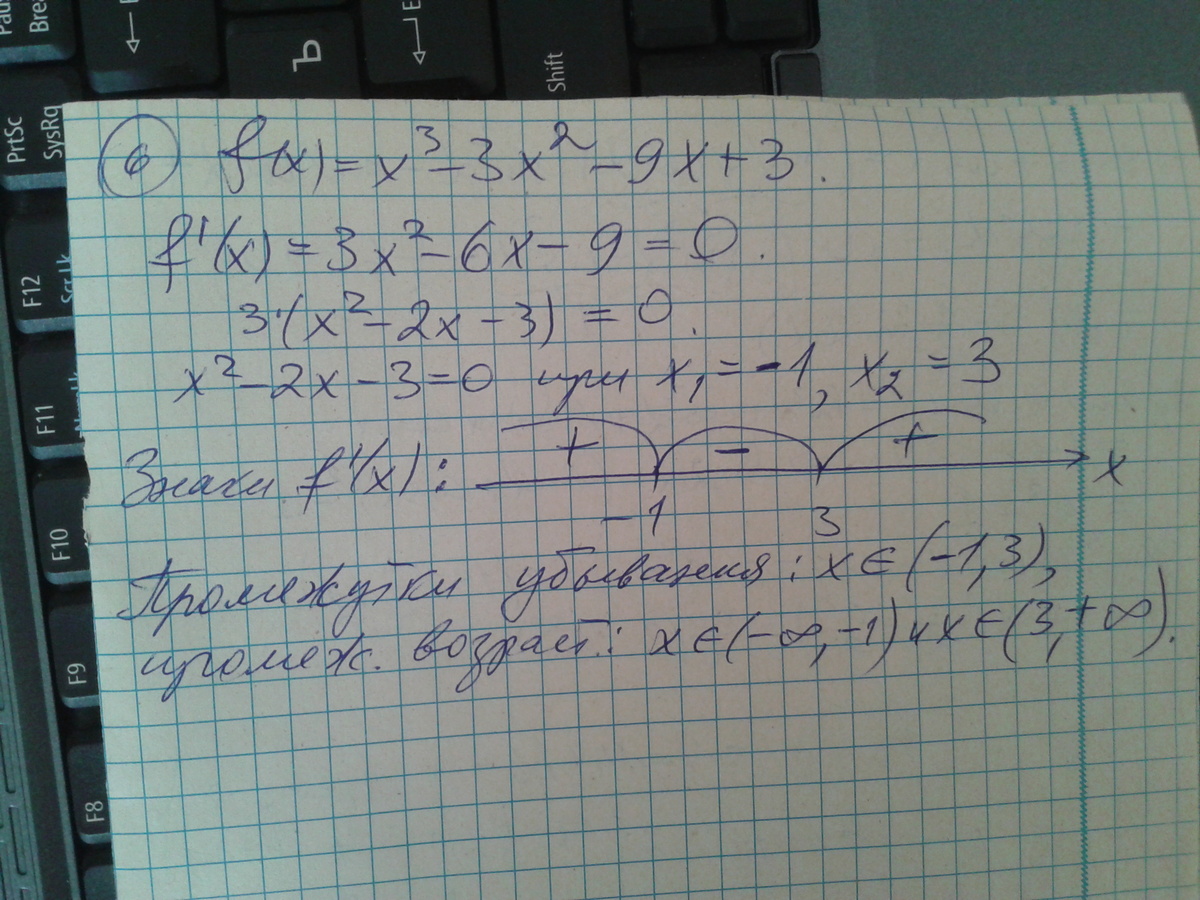 Pau
Brea
← E
Ъ
E
Shift
PrtSc
SysRq
F12
Scr Lk
F11
F10
F9
F8
6 f(x) = x³ - 3x² - 9x + 3.
f'(x) = 3x² - 6x - 9 = 0.
3·(x² - 2x - 3) = 0.
x² - 2x - 3 = 0 при x₁ = -1, x₂ = 3
+ - +
Знаки f'(x): x
-1 3
Промежутки убывания: x ∈ (-1, 3),
промеж. возраст: x ∈ (-∞, -1) и x ∈ (3, +∞).